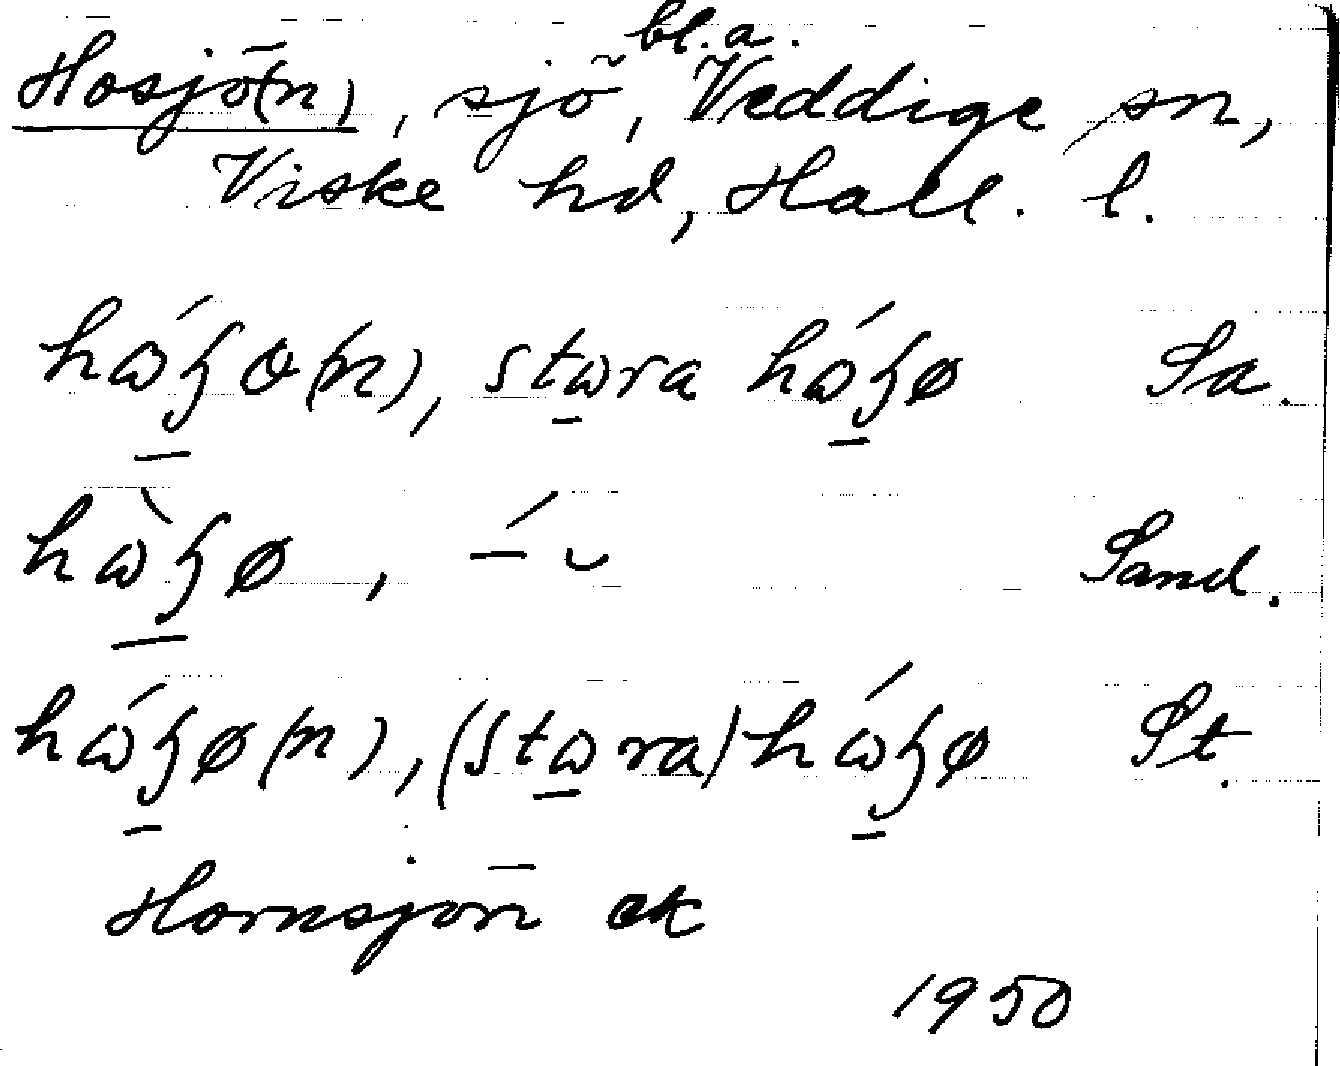 Hosjö(n), sjö, bl.a. Veddige sn,
Viske hd, Hall. l.
hώɧø(n), stωra hώɧø Sa.
hὼɧø, –́ ⏑ Sand.
hώɧø(n), (stωra) hώɧø St.
Hornsjön ek
1950